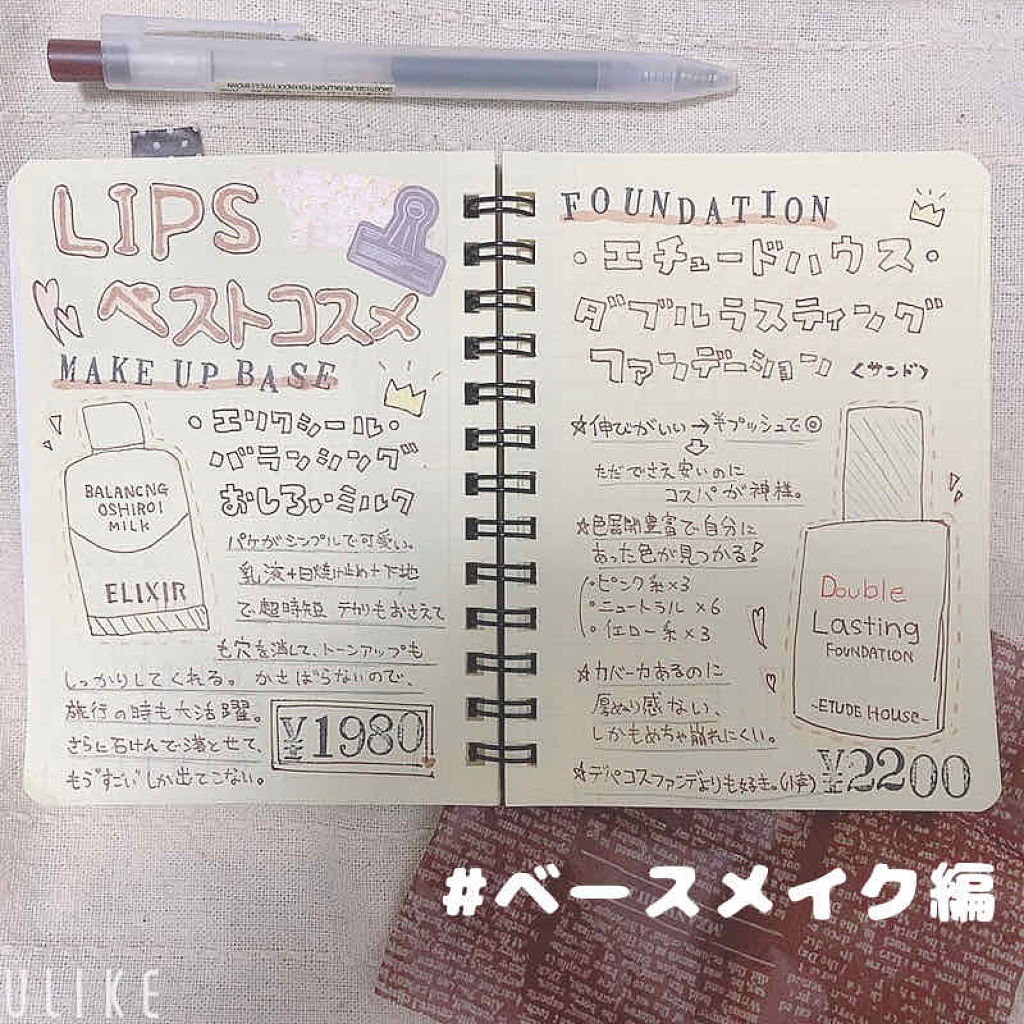 LIPS
ベストコスメ
MAKE UP BASE
・エリクシール・
バランシング
おしろいミルク
BALANCNG
OSHIROI
MILK
ELIXIR
パケがシンプルで可愛い。
乳液+日焼け止め+下地
で、超時短 テカリもおさえて
も穴を消して、トーンアップも
しっかりしてくれる。かさばらないので、
旅行の時も大活躍。
さらに石けんで落とせて、
もう"すごい"しか出てこない。
¥1980
FOUNDATION
・エチュードハウス・
ダブルラスティング
ファンデーション <サンド>
☆伸びがいい→半プッシュで◎
ただでさえ安いのに
コスパが神様。
☆色展開豊富で自分に
あった色が見つかる!
・ピンク系×3
・ニュートラル×6
・イエロー系×3
☆カバー力あるのに
厚ぬり感ない、
しかもめちゃ崩れにくい。
☆デパコスファンデよりも好き。(小声)
Double
Lasting
FOUNDATION
~ETUDE HOUSE~
¥2200
#ベースメイク編
ULIKE